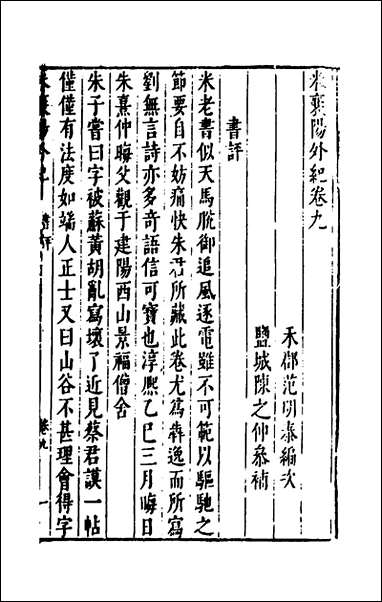 米襄陽外紀卷九
禾郡范明泰編次
鹽城陳之仲叅補
書評
米老書似天馬脫御追風逐電雖不可範以驅馳之
節要自不妨痛快朱君所藏此卷尤為犇逸而所寫
劉無言詩亦多奇語信可寶也淳熙乙巳三月晦日
朱熹仲晦父觀于建陽西山景福僧舍
朱子嘗曰字被蘇黃胡亂寫壞了近見蔡君謨一帖
僅僅有法度如端人正士又曰山谷不甚理會得字
米襄陽外紀
書評
卷九
一